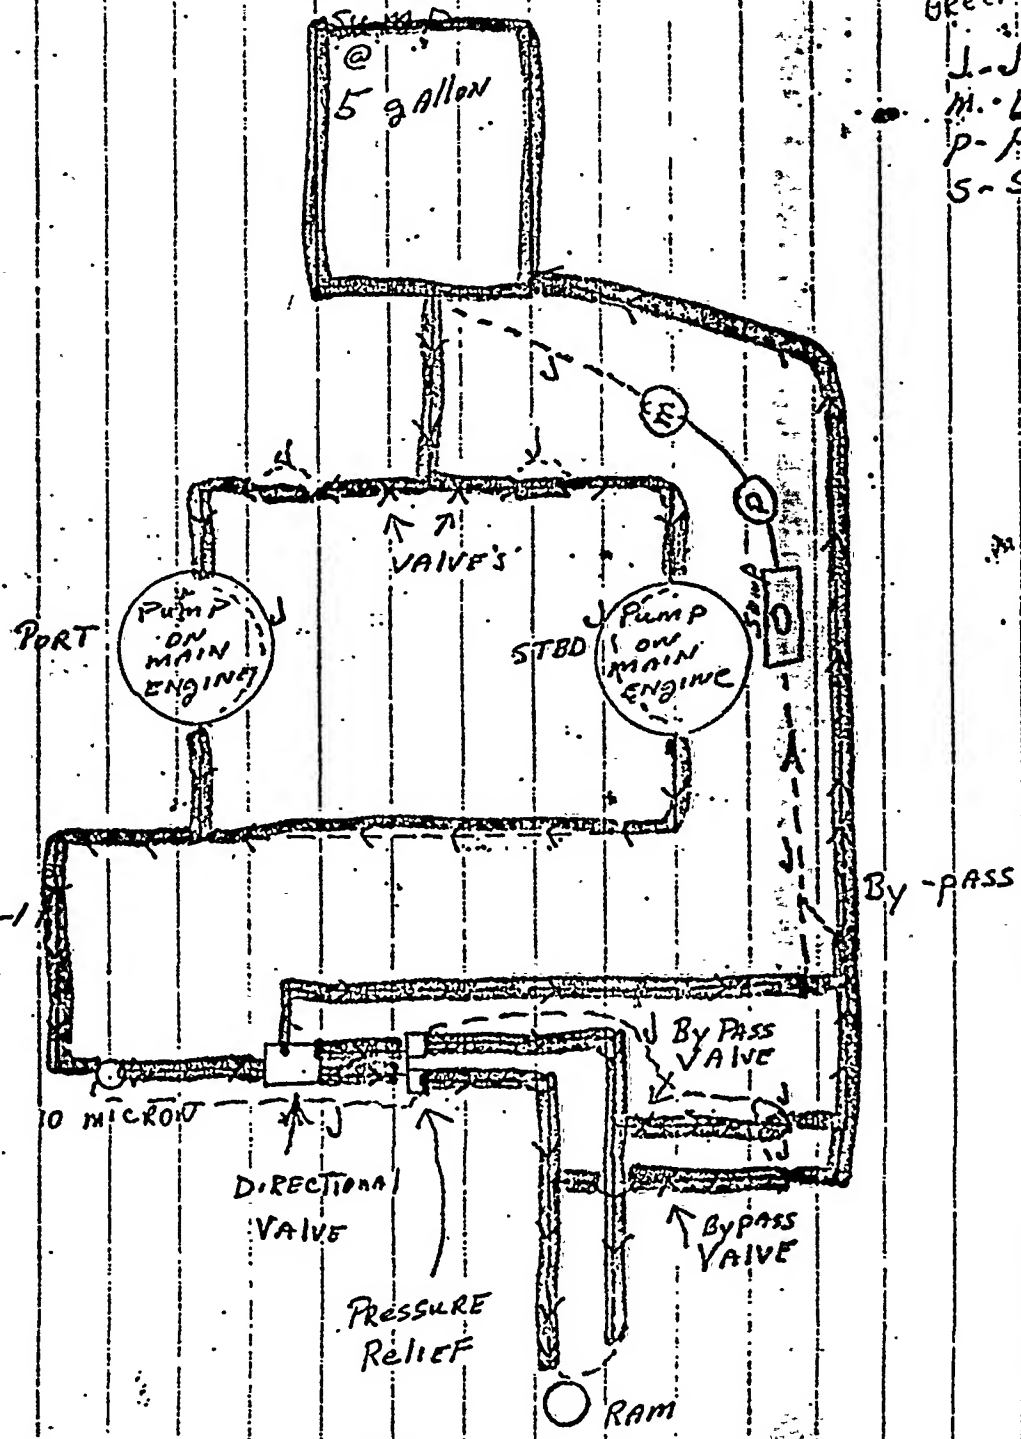 SUMP
@
5 gallon
J
E
J
J
P
VALVE'S
PORT
PUMP
ON
MAIN
ENGINE
J
STBD
J
PUMP
ON
MAIN
ENGINE
SUMP
By-pass
J
By Pass
VALVE
10 MICRON
J
DIRECTIONAL
VALVE
BYPASS
VALVE
PRESSURE
RELIEF
RAM